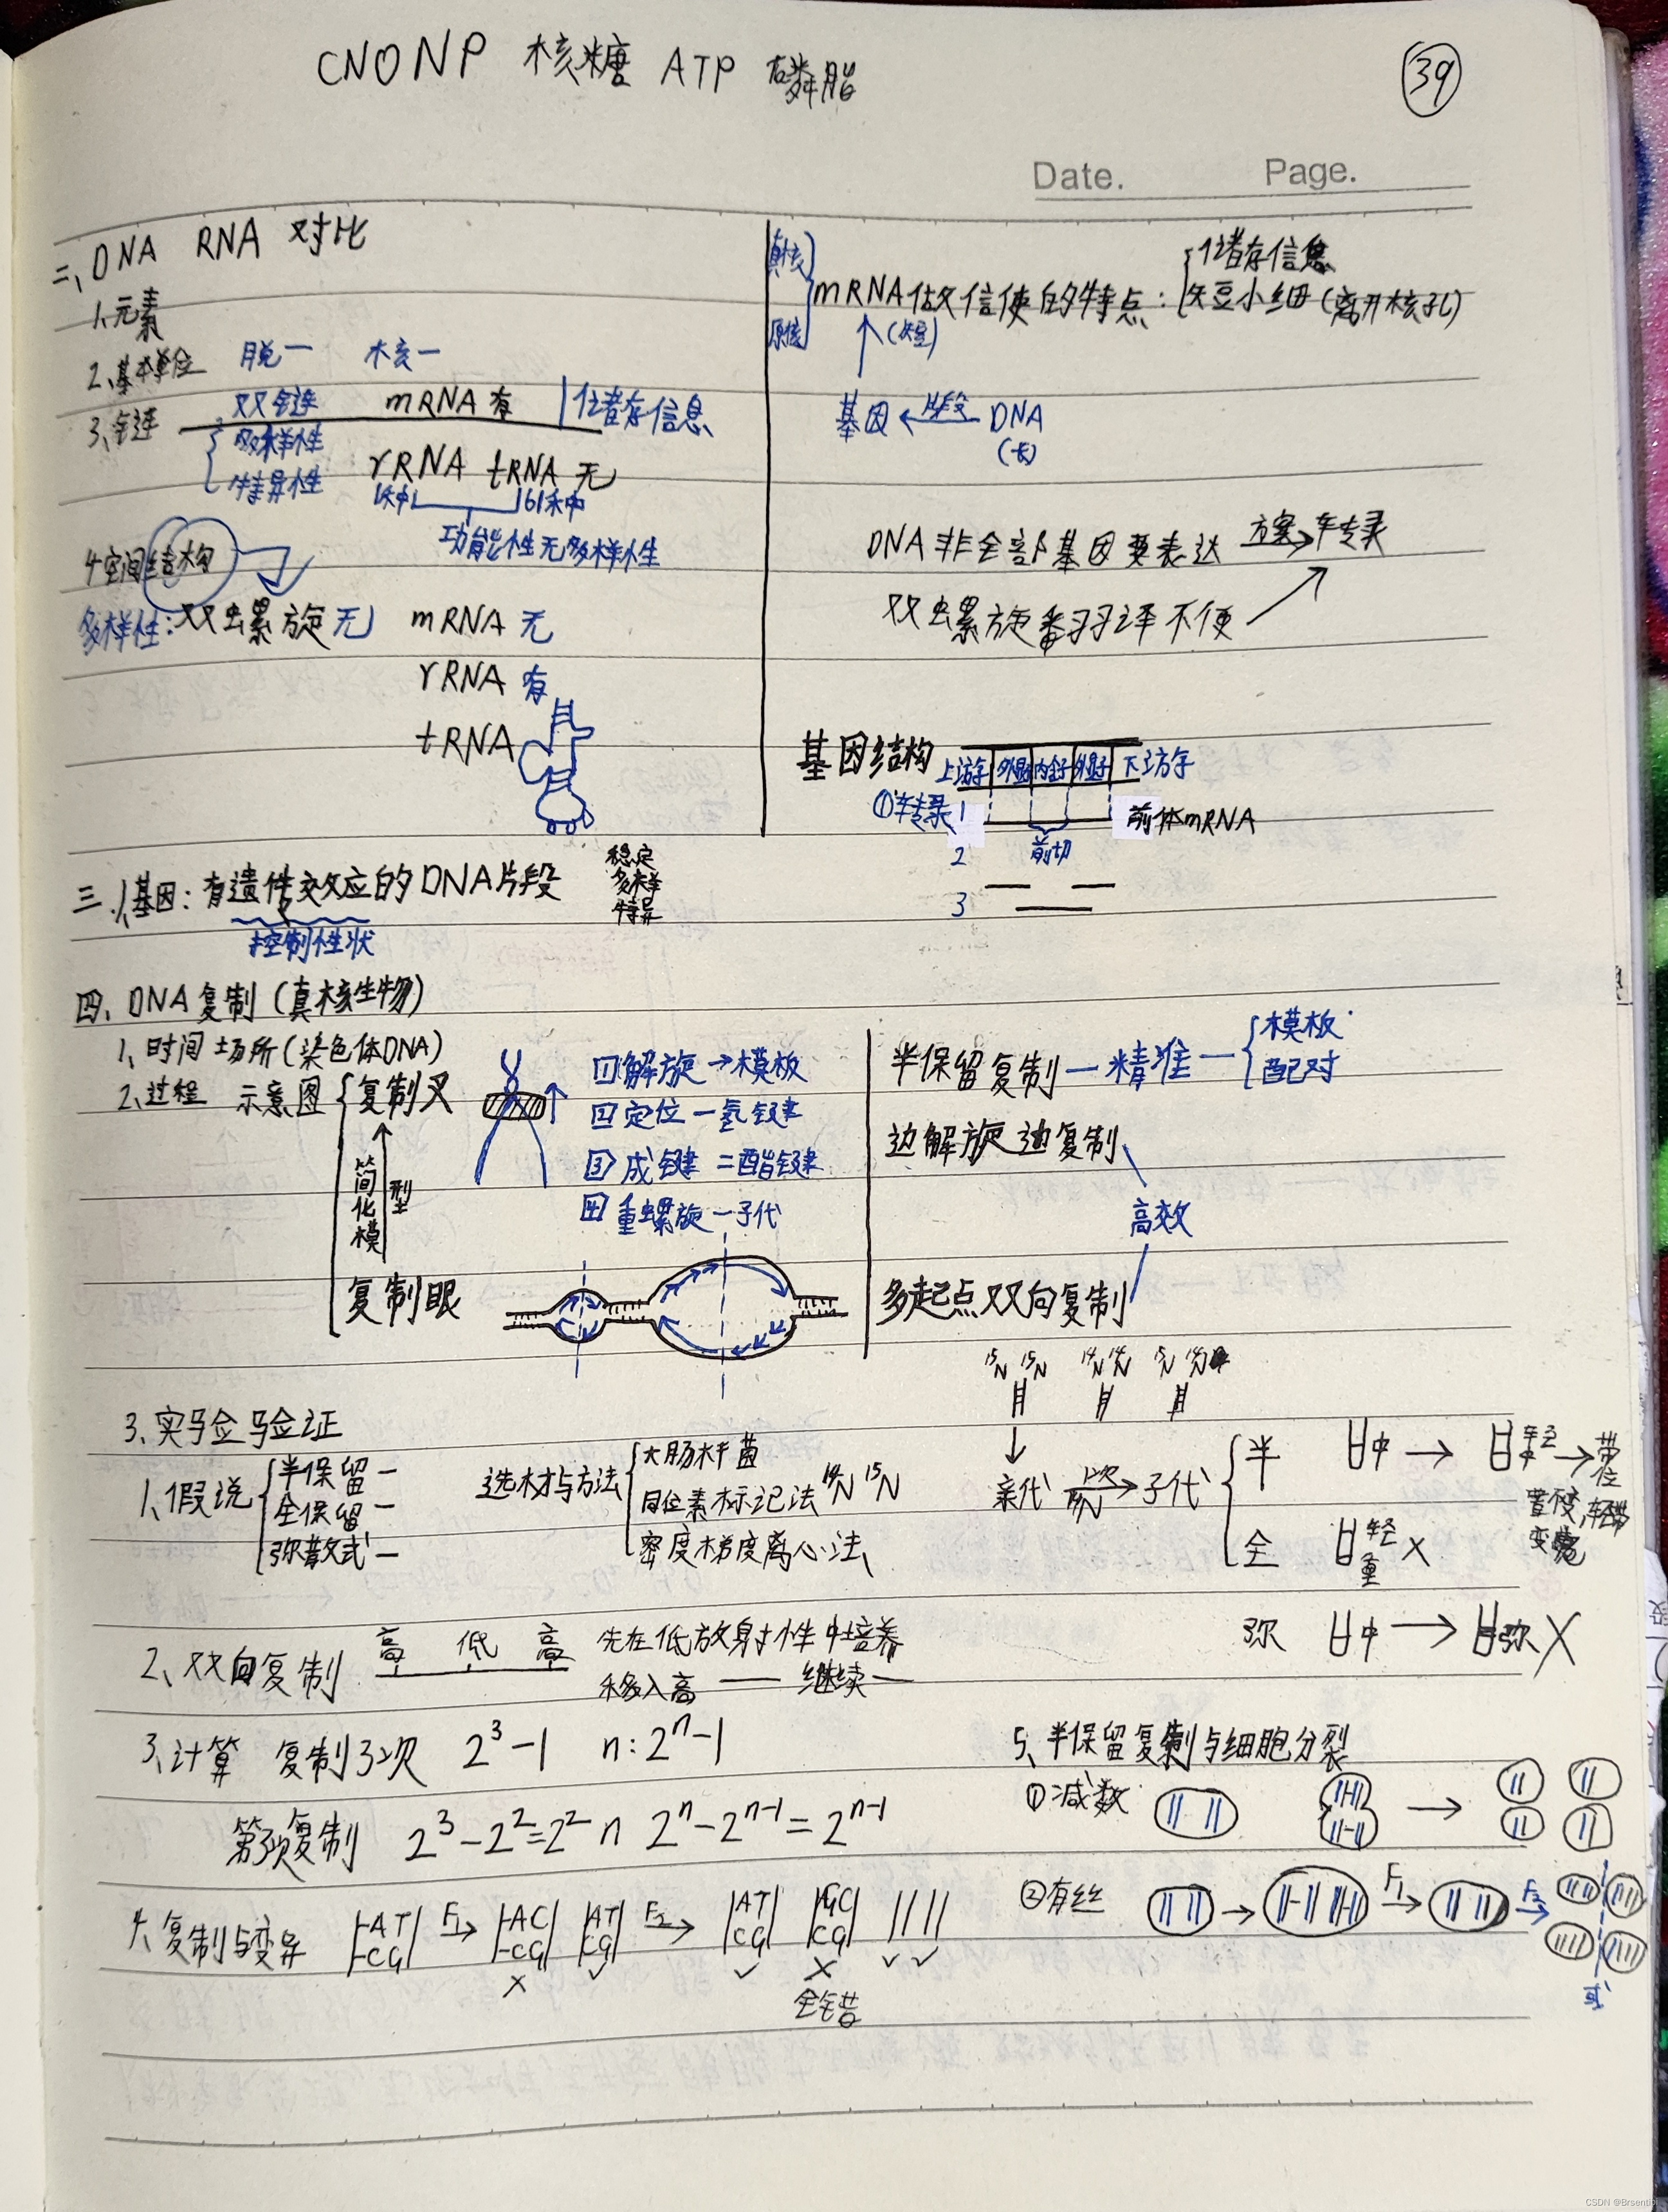 CNONP 核糖 ATP 磷脂
39
Date. Page.
二、DNA RNA 对比
1、元素
2、基本单位 脱一 核一
3、链 双链 mRNA 有 储存信息
多样性
特异性 rRNA tRNA 无
1种 61种
功能性无多样性
4、空间结构
多样性：双螺旋无 mRNA 无
rRNA 有
tRNA
真核
原核
mRNA做信使的特点：
储存信息
短小细（离开核孔）
（短）
基因 ← 片段 DNA
（长）
DNA非全部基因要表达 方案→ 转录
双螺旋翻译不便
基因结构 上游子 外显子 内含子 外显子 下游子
①转录 1 前体mRNA
2 剪切
3
三、1、基因：有遗传效应的DNA片段
控制性状
稳定
多样
特异
四、DNA复制（真核生物）
1、时间 场所（染色体DNA）
2、过程 示意图 复制叉
简化模型
复制眼
1 解旋→模板
2 定位一氢键
3 成键 二酯键
4 重螺旋一子代
半保留复制一精准一 模板
配对
边解旋边复制
高效
多起点双向复制
3、实验验证
1、假说 半保留一
全保留一
弥散式一
选材与方法 大肠杆菌
同位素标记法 ¹⁴N ¹⁵N
密度梯度离心法
¹⁵N ¹⁵N ¹⁴N ¹⁴N ¹⁵N ¹⁴N
亲代 → 子代
半 中 → 轻中 → 带位置不变，轻带变宽
全 轻重 ×
弥 中 → 弥 ×
2、双向复制 高 低 高 先在低放射性中培养
移入高 —— 继续 —
3、计算 复制3次 2³-1 n：2ⁿ-1
第3次复制 2³-2²=2² n 2ⁿ-2ⁿ⁻¹=2ⁿ⁻¹
4、复制与变异 AT CG F₁→ AC CG × AT CG ✓ F₂→ AT CG ✓ GC CG × ✓ ✓
全错
5、半保留复制与细胞分裂
①减数
②有丝 → F₁→ F₂→
或
CSDN @Brsentibi